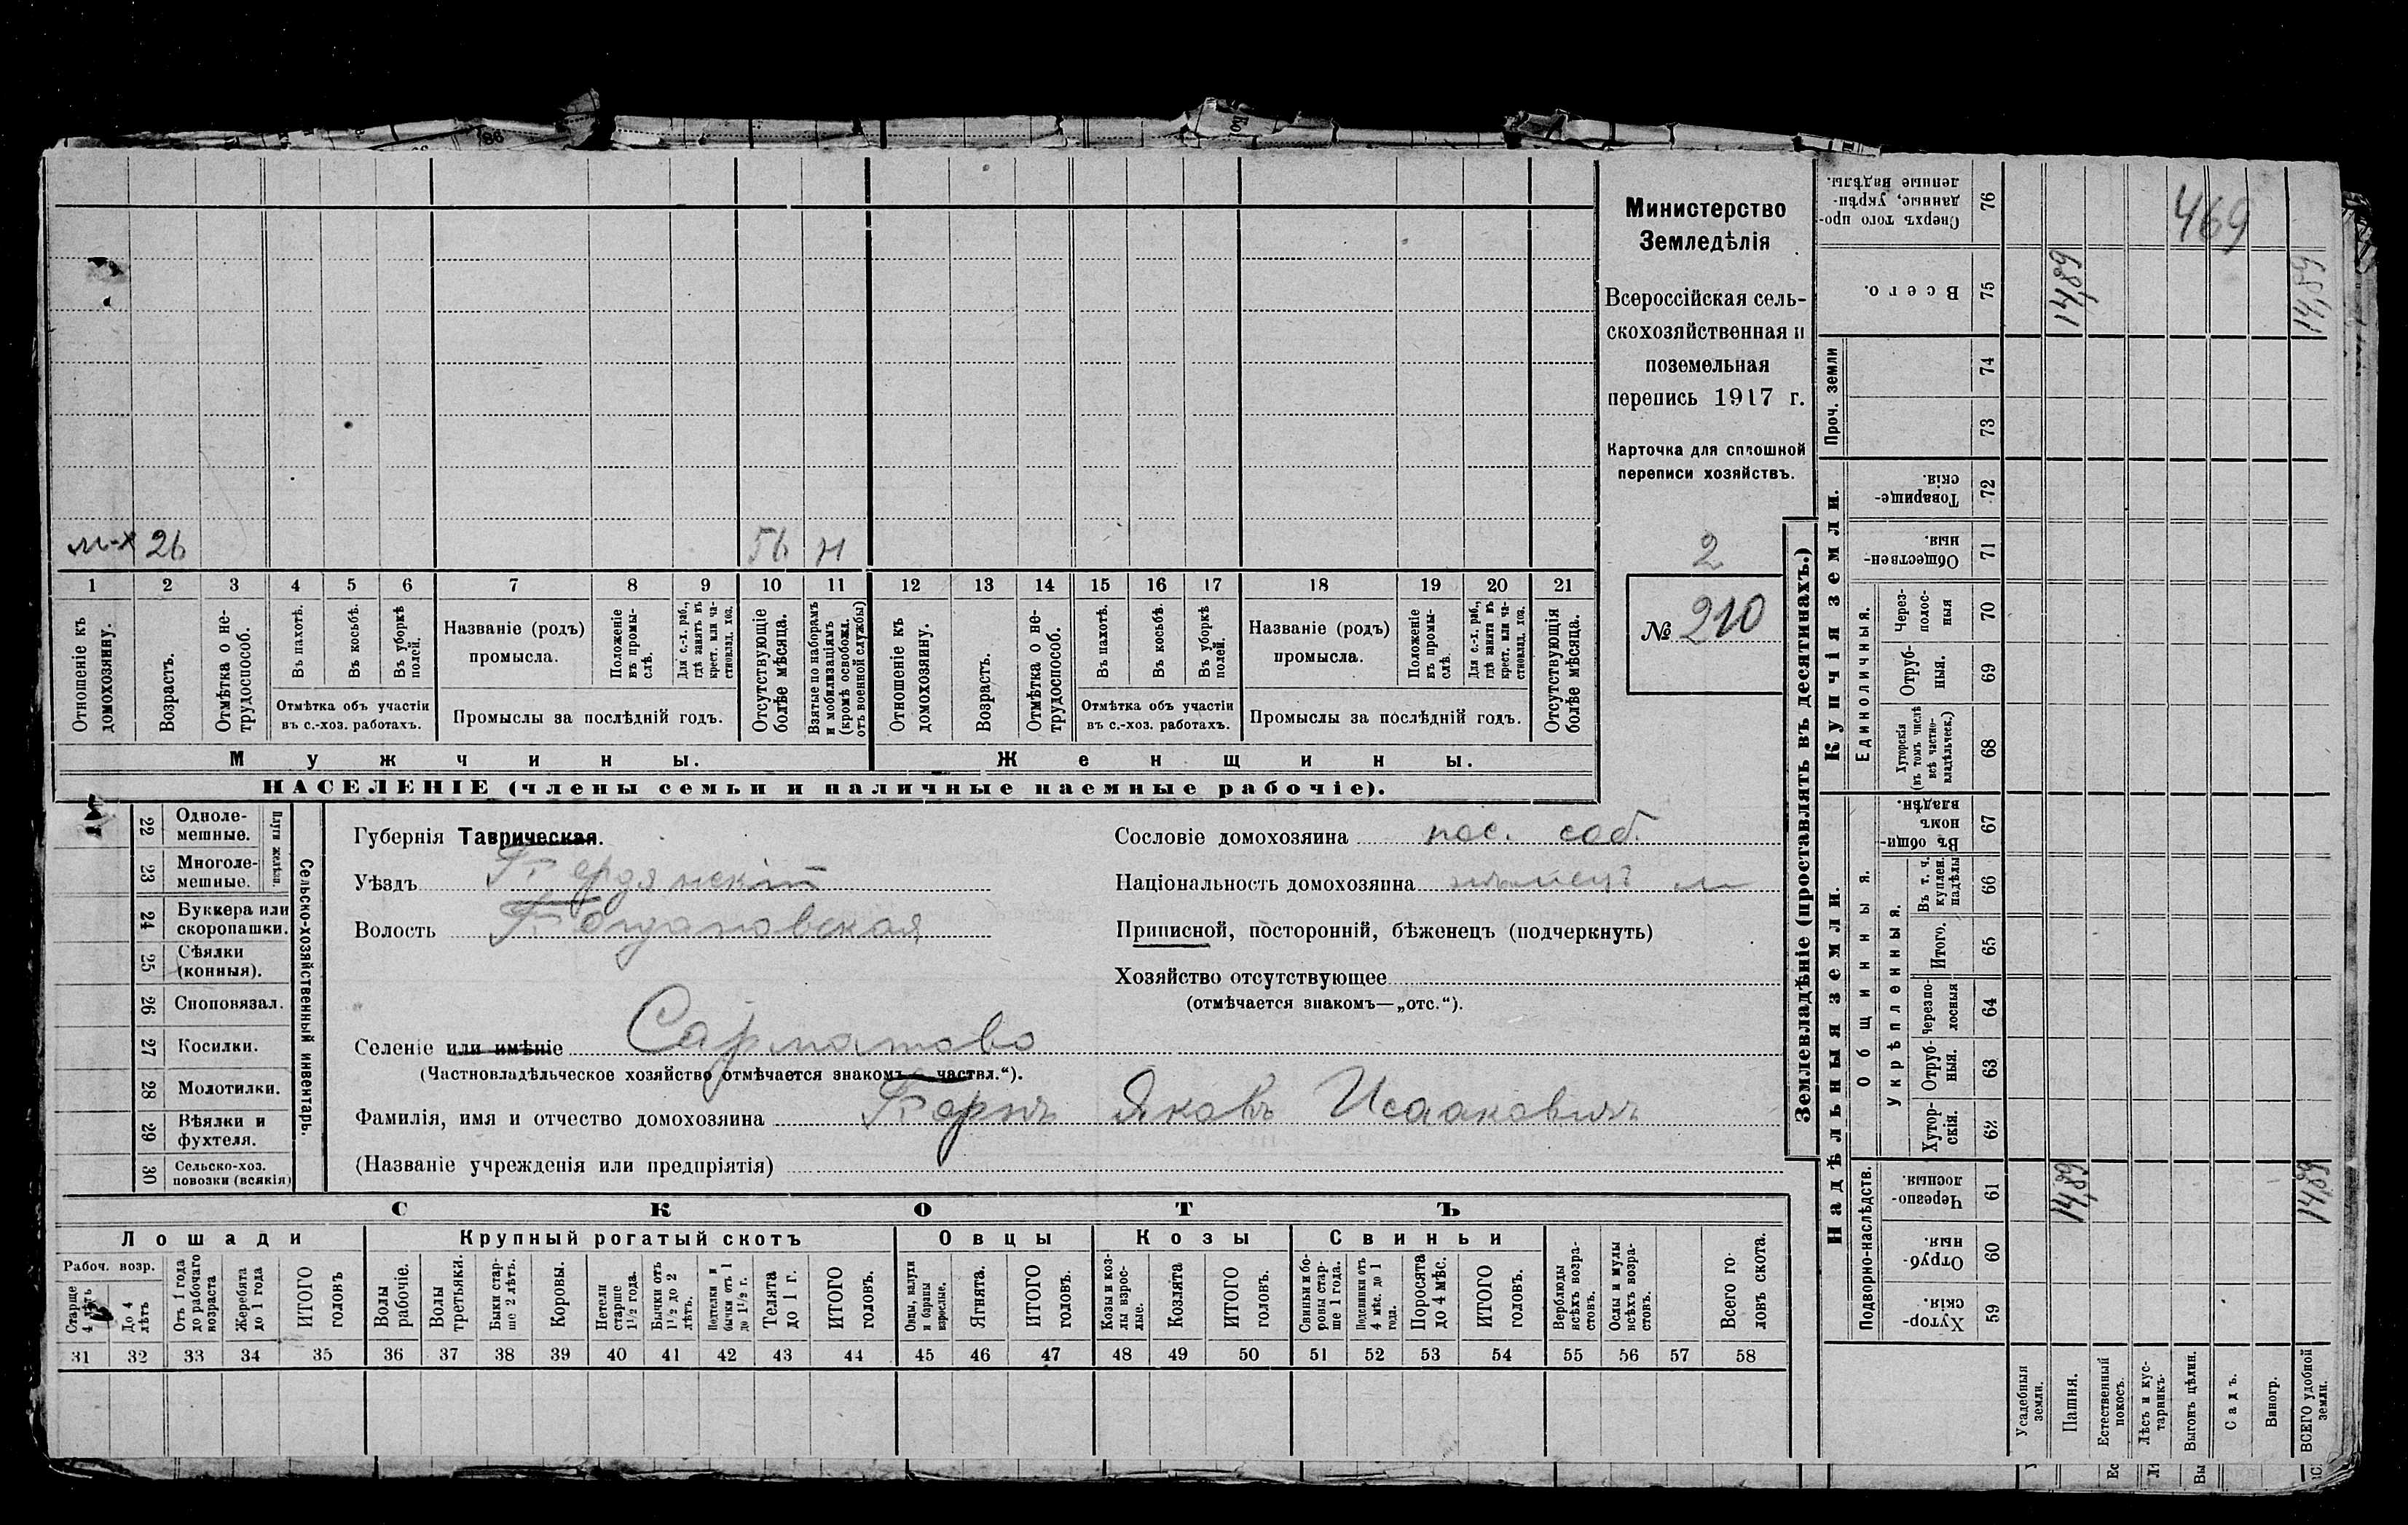 86
469
Министерство
Земледѣлія
Всероссійская сель-
скохозяйственная и
поземельная
перепись 1917 г.
Карточка для сплошной
переписи хозяйствъ.
2
№ 210
м-х 26 56 н
1 2 3 4 5 6 7 8 9 10 11 12 13 14 15 16 17 18 19 20 21
Отношеніе къ домохозяину.
Возрастъ.
Отмѣтка о не-трудоспособ.
Въ пахотѣ.
Въ косьбѣ.
Въ уборкѣ полей.
Отмѣтка объ участіи
въ с.-хоз. работахъ.
Названіе (родъ)
промысла.
Положеніе въ промы-слѣ.
Для с.-х. раб., гдѣ занятъ въ крест. или ча-стновлад. хоз.
Промыслы за послѣдній годъ.
Отсутствующіе болѣе мѣсяца.
Взятые по наборамъ и мобилизаціямъ (кромѣ освобожд. отъ военной службы)
Отношеніе къ домохозяину.
Возрастъ.
Отмѣтка о не-трудоспособ.
Въ пахотѣ.
Въ косьбѣ.
Въ уборкѣ полей.
Отмѣтка объ участіи
въ с.-хоз. работахъ.
Названіе (родъ)
промысла.
Положеніе въ промы-слѣ.
Для с.-х. раб., гдѣ занята въ крест. или ча-стновлад. хоз.
Промыслы за послѣдній годъ.
Отсутствующія болѣе мѣсяца.
Мужчины. Женщины.
НАСЕЛЕНІЕ (члены семьи и наличные наемные рабочіе).
22 Одноле-мешные.
23 Многоле-мешные.
Плуги желѣзн.
24 Буккера или скоропашки.
25 Сѣялки (конныя).
26 Сноповязал.
27 Косилки.
28 Молотилки.
29 Вѣялки и фухтеля.
30 Сельско-хоз. повозки (всякія)
Сельско-хозяйственный инвентарь.
Губернія Таврическая.
Уѣздъ Бердянскій
Волость Богдановская
Селеніе или имѣніе Сарматово
(Частновладѣльческое хозяйство отмѣчается знакомъ—„частвл.“).
Фамилія, имя и отчество домохозяина Бернъ Яковъ Исааковичъ
(Названіе учрежденія или предпріятія)
Сословіе домохозяина пос. соб.
Національность домохозяина нѣмецъ м
Приписной, посторонній, бѣженецъ (подчеркнуть)
Хозяйство отсутствующее
(отмѣчается знакомъ—„отс.“).
СКОТЪ
Лошади Крупный рогатый скотъ Овцы Козы Свиньи
Рабоч. возр.
Старше 4 лѣтъ
До 4 лѣтъ
Отъ 1 года до рабочаго возраста
Жеребята до 1 года
ИТОГО головъ
Волы рабочіе.
Волы третьяки.
Быки стар-ше 2 лѣтъ.
Коровы.
Нетели старше 1½ года.
Бычки отъ 1½ до 2 лѣтъ.
Подтелки и бычки отъ 1 до 1½ г.
Телята до 1 г.
ИТОГО головъ.
Овцы, валухи и бараны взрослые.
Ягнята.
ИТОГО головъ.
Козы и коз-лы взрос-лые.
Козлята
ИТОГО головъ.
Свиньи и бо-ровы стар-ше 1 года.
Подсвинки отъ 4 мѣс. до 1 года.
Поросята до 4 мѣс.
ИТОГО головъ.
Верблюды всѣхъ возра-стовъ.
Ослы и мулы всѣхъ возра-стовъ.
Всего го-ловъ скота.
31 32 33 34 35 36 37 38 39 40 41 42 43 44 45 46 47 48 49 50 51 52 53 54 55 56 57 58
Землевладѣніе (проставлять въ десятинахъ.)
Купчія земли.
Надѣльныя земли.
Сверхъ того про-данные, укрѣп-ленные надѣлы. 76
Всего. 75 14,89 14,89
Проч. земли 74 73
Товарище-скія. 72
Обществен-ныя. 71
Единоличныя.
Черезполос-ныя 70
Отруб-ныя. 69
Хуторскія (въ томъ числѣ всѣ частно-владѣльческ.) 68
Общинныя.
Въ общи-номъ владѣн. 67
Укрѣпленныя.
Въ т. ч. куплен. надѣлы 66
Итого. 65
Черезпо-лосныя 64
Отруб-ныя. 63
Хутор-скія. 62
Подворно-наслѣдств.
Черезпо-лосныя. 61 14,89 14,89
Отруб-ныя. 60
Хутор-скія. 59
Усадебныя земли.
Пашня.
Естественный покосъ.
Лѣсъ и кус-тарникъ.
Выгонъ цѣлин.
Садъ.
Виногр.
ВСЕГО удобной земли.